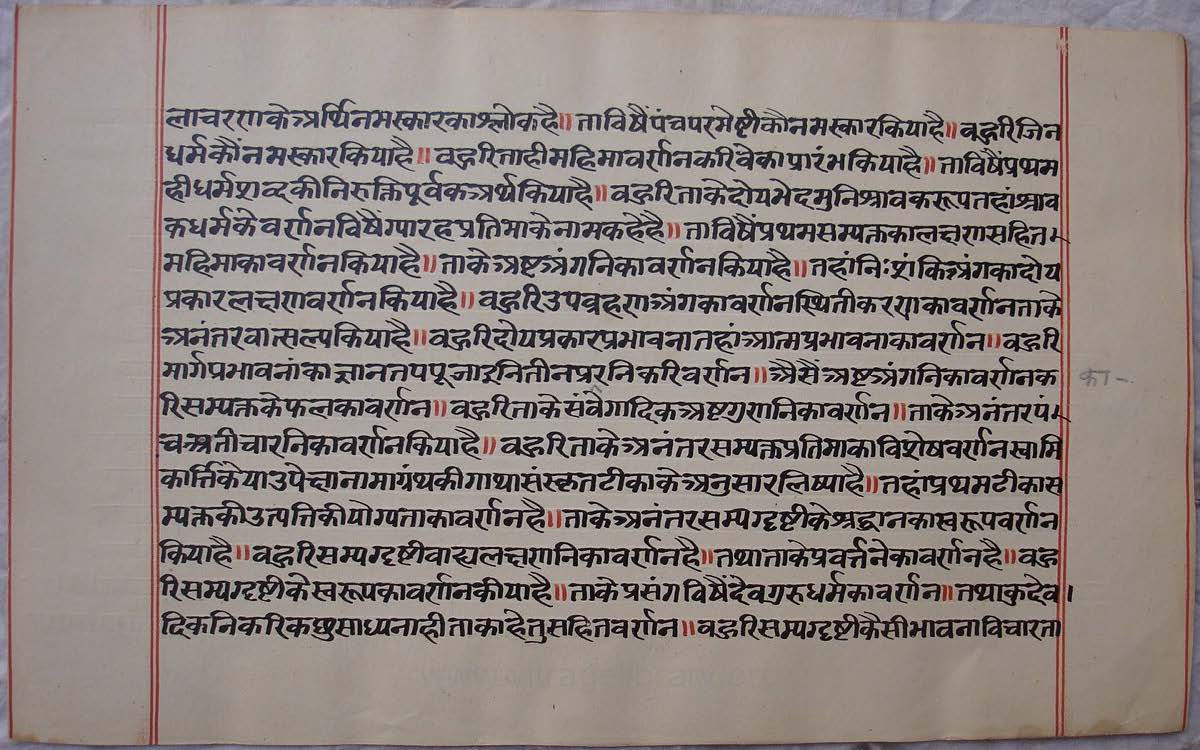 लाचरणकेअर्थिनमस्कारकाश्लोकहै॥ ताविषैंपंचपरमेष्टीकौनमस्कारकियाहै॥ बहुरिजिन
धर्मकौंनमस्कारकियाहै॥ बहुरिताहीमहिमावर्णनकरिवेकाप्रारंभकियाहै॥ ताविषैंप्रथम
हीधर्मशब्दकीनिरुक्तिपूर्वकअर्थकियाहै॥ बहुरिताकेदोयभेदमुनिश्रावकरूपतहांश्राव
कधर्मकेवर्णनविषैंग्यारहप्रतिमाकेनामकहेहै॥ ताविषैंप्रथमसम्यक्तकालक्षणसहित
महिमाकावर्णनकियाहै॥ ताकेअष्टअंगनिकावर्णनकियाहै॥ तहांनिःशंकिअंगकादोय
प्रकारलक्षणवर्णनकियाहै॥ बहुरिउपबृहणअंगकावर्णनस्थितीकरणकावर्णनताके
अनंतरवात्सल्यकियाहै॥ बहुरिदोयप्रकारप्रभावनातहांआत्मप्रभावनाकावर्णन॥ बहुरि
मार्गप्रभावनांकाज्ञानतपपूजाइनितीनप्ररनिकरिवर्णन॥ अैसैंअष्टअंगनिकावर्णनक
का-
रिसम्यक्तकेफलकावर्णन॥ बहुरिताकेसंवेगादिकअष्टगुणनिकावर्णन॥ ताकेअनंतरपं
चअतीचारनिकावर्णनकियाहै॥ बहुरिताकेअनंतरसम्यक्तप्रतिमाकाविशेषवर्णनस्वामि
कार्त्तिकेयाउपेक्षानामाग्रंथकीगाथासंस्कृतटीकाकेअनुसारलिष्याहै॥ तहांप्रथमटीकास
म्यक्तकीउत्पत्तिकीयोग्यताकावर्णनहै॥ ताकेअनंतरसम्यग्दृष्टीकेश्रद्धानकास्वरूपवर्णन
कियाहै॥ बहुरिसम्यग्दृष्टीवाह्यलक्षणनिकावर्णनहै॥ तथाताकेप्रवर्त्तनेकावर्णनहै॥ बहु
रिसम्यग्दृष्टीकेस्वरूपकावर्णनकीयाहै॥ ताकेप्रसंगविषैंदेवगुरुधर्मकावर्णन॥ तथाकुदेव।
दिकनिकरिकछुसाध्यनाहीताकाहेतुसहितवर्णन॥ बहुरिसम्यग्दृष्टीकैसीभावनाविचारता